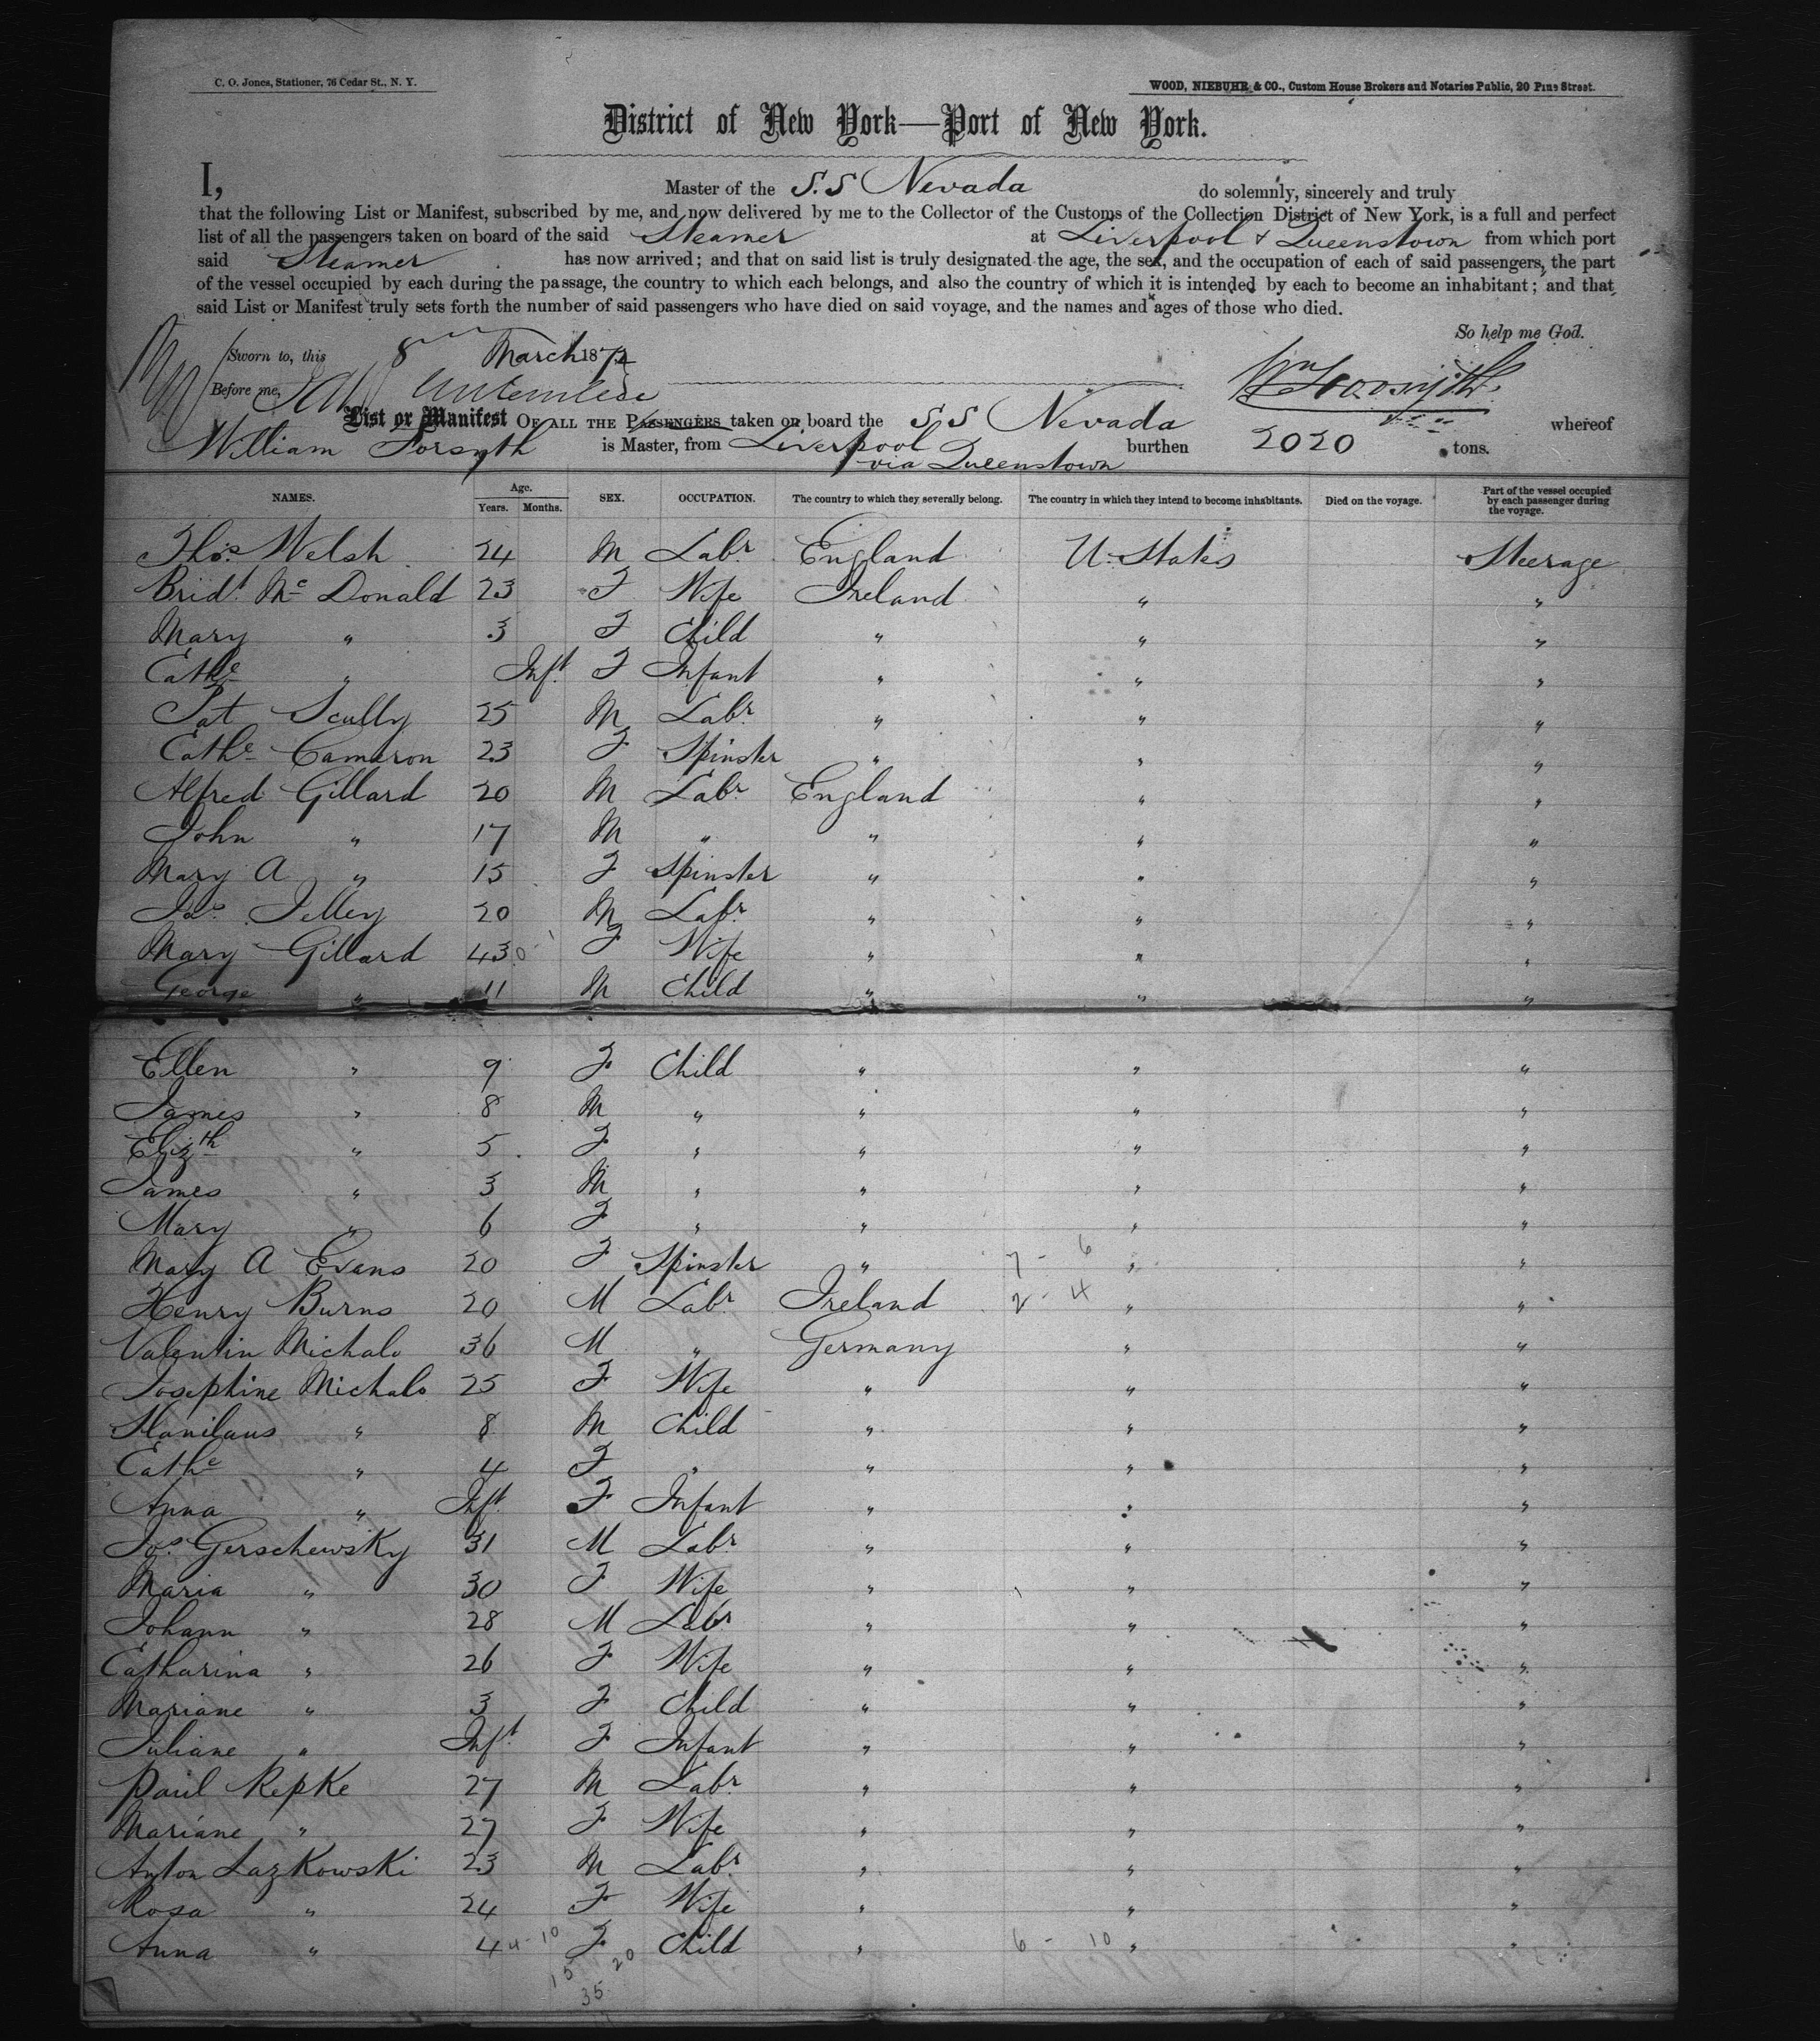 C. O. Jones, Stationer, 76 Cedar St., N. Y.
WOOD, NIEBUHR & CO., Custom House Brokers and Notaries Public, 20 Pine Street.
District of New York—Port of New York.
I, Master of the S.S Nevada do solemnly, sincerely and truly
that the following List or Manifest, subscribed by me, and now delivered by me to the Collector of the Customs of the Collection District of New York, is a full and perfect
list of all the passengers taken on board of the said Steamer at Liverpool & Queenstown from which port
said Steamer has now arrived; and that on said list is truly designated the age, the sex, and the occupation of each of said passengers, the part
of the vessel occupied by each during the passage, the country to which each belongs, and also the country of which it is intended by each to become an inhabitant; and that
said List or Manifest truly sets forth the number of said passengers who have died on said voyage, and the names and ages of those who died.
So help me God.
Sworn to, this 8 March 187
Before me,
Wm Forsyth
List or Manifest OF ALL THE PASSENGERS taken on board the S S Nevada whereof
William Forsyth is Master, from Liverpool via Queenstown burthen 2020 tons.
NAMES. Age. Years. Months. SEX. OCCUPATION. The country to which they severally belong. The country in which they intend to become inhabitants. Died on the voyage. Part of the vessel occupied by each passenger during the voyage.
Thos. Welsh 24 M Labr. England U. States Steerage
Bridt. Mc Donald 23 F Wife Ireland " "
Mary " 3 F Child " " "
Cathe " Inft F Infant " " "
Pat Scully 25 M Labr. " " "
Cathe Cameron 23 F Spinster " " "
Alfred Gillard 20 M Labr. England " "
John " 17 M " " " "
Mary A " 15 F Spinster " " "
Jas. Jelley 20 M Labr. " " "
Mary Gillard 43 F Wife " " "
George " 11 M Child " " "
Ellen " 9 F Child " " "
James " 8 M " " " "
Elizth " 5 F " " " "
James " 3 M " " " "
Mary " 6 F " " " "
Mary A Evans 20 F Spinster " 7 - 6 " "
Henry Burns 20 M Labr Ireland 2 - 4 " "
Valentin Michalo 36 M " Germany " "
Josephine Michalo 25 F Wife " " "
Stanilaus " 8 M Child " " "
Cathe " 4 F " " " "
Anna " Inft. F Infant " " "
Jos. Gerschewsky 31 M Labr. " " "
Maria " 30 F Wife " " "
Johann " 28 M Labr " " "
Catharina " 26 F Wife " " "
Mariane " 3 F Child " " "
Juliane " Inft. F Infant " " "
Paul Repke 27 M Labr. " " "
Mariane " 27 F Wife " " "
Anton Lazkowski 23 M Labr. " " "
Rosa " 24 F Wife " " "
Anna " 4 4 - 10 F Child " 6 - 10 " "
15 20
35